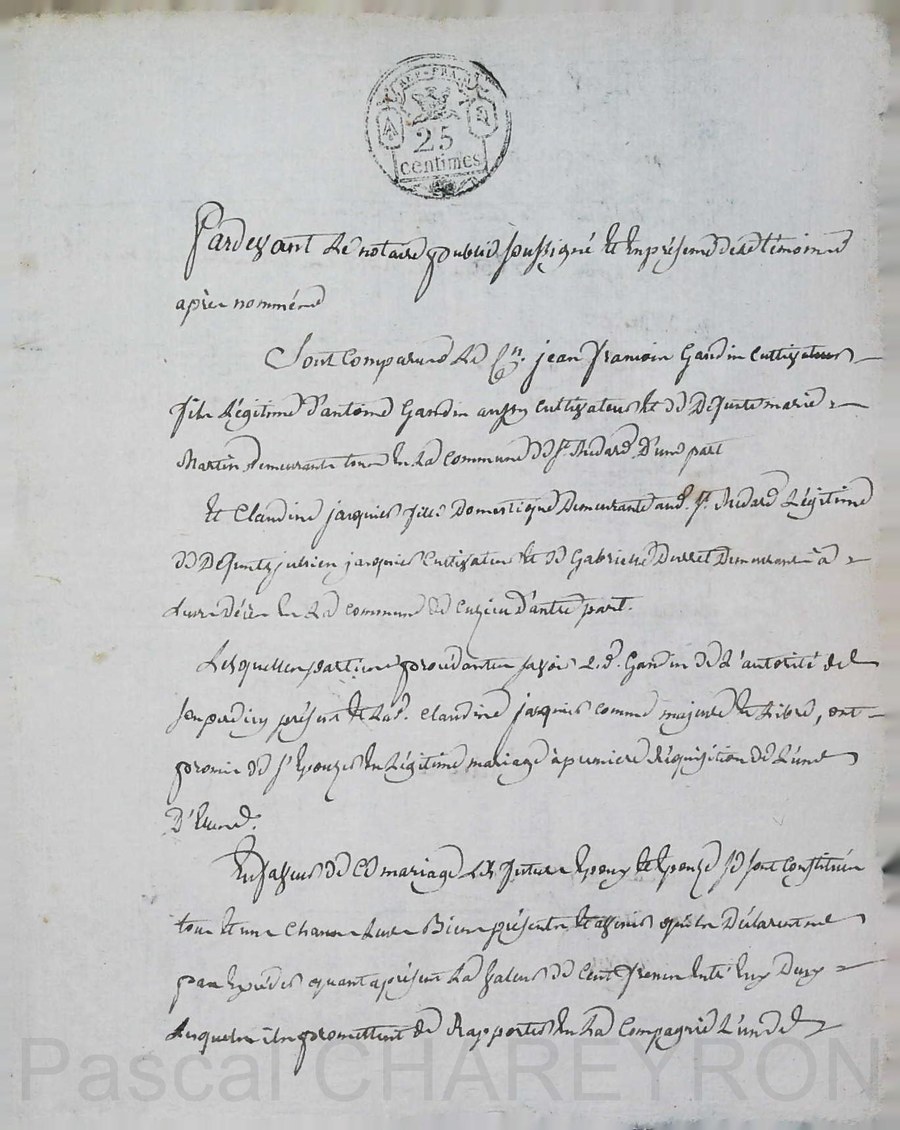 REP. FRA.
25
centimes
Pardevant Le notaire public soussigné Et En présence des témoins
après nommés
Sont Comparus Le Cen. jean François Gardin Cultivateur
fils Légitime d'antoine Gardin aussy Cultivateur Et de Defunte marie
Martin Demeurants tous En La Commune de St. Medard D'une part
Et Claudine jacquier fille Domestique Demeurante aud. St. Medard Légitime
de Defunt julien jacquier Cultivateur Et de Gabrielle Demeurant à
En La commune de Cuzieu D'autre part.
Lesquelles parties procédantes savoir Led. Gardin de L'autorité de
son perdicy présent Et Lad. Claudine jacquier comme majeure Et Libre, ont
promis de s'Epouzer En Légitime mariage à premiere Réquisition de L'une
D'Elles.
En faveur de Ce mariage Les futurs Epoux Et Epouze se sont Constitués
tous Et uns Chacun Leurs Biens présents Et avenir qu'ils Déclarent ne
pas Excéder quant à présent La Valeur de Cent francs Entre Eux Deux
Lesquels ils promettent de Rapporter En La Compagnie L'un de
Pascal CHAREYRON